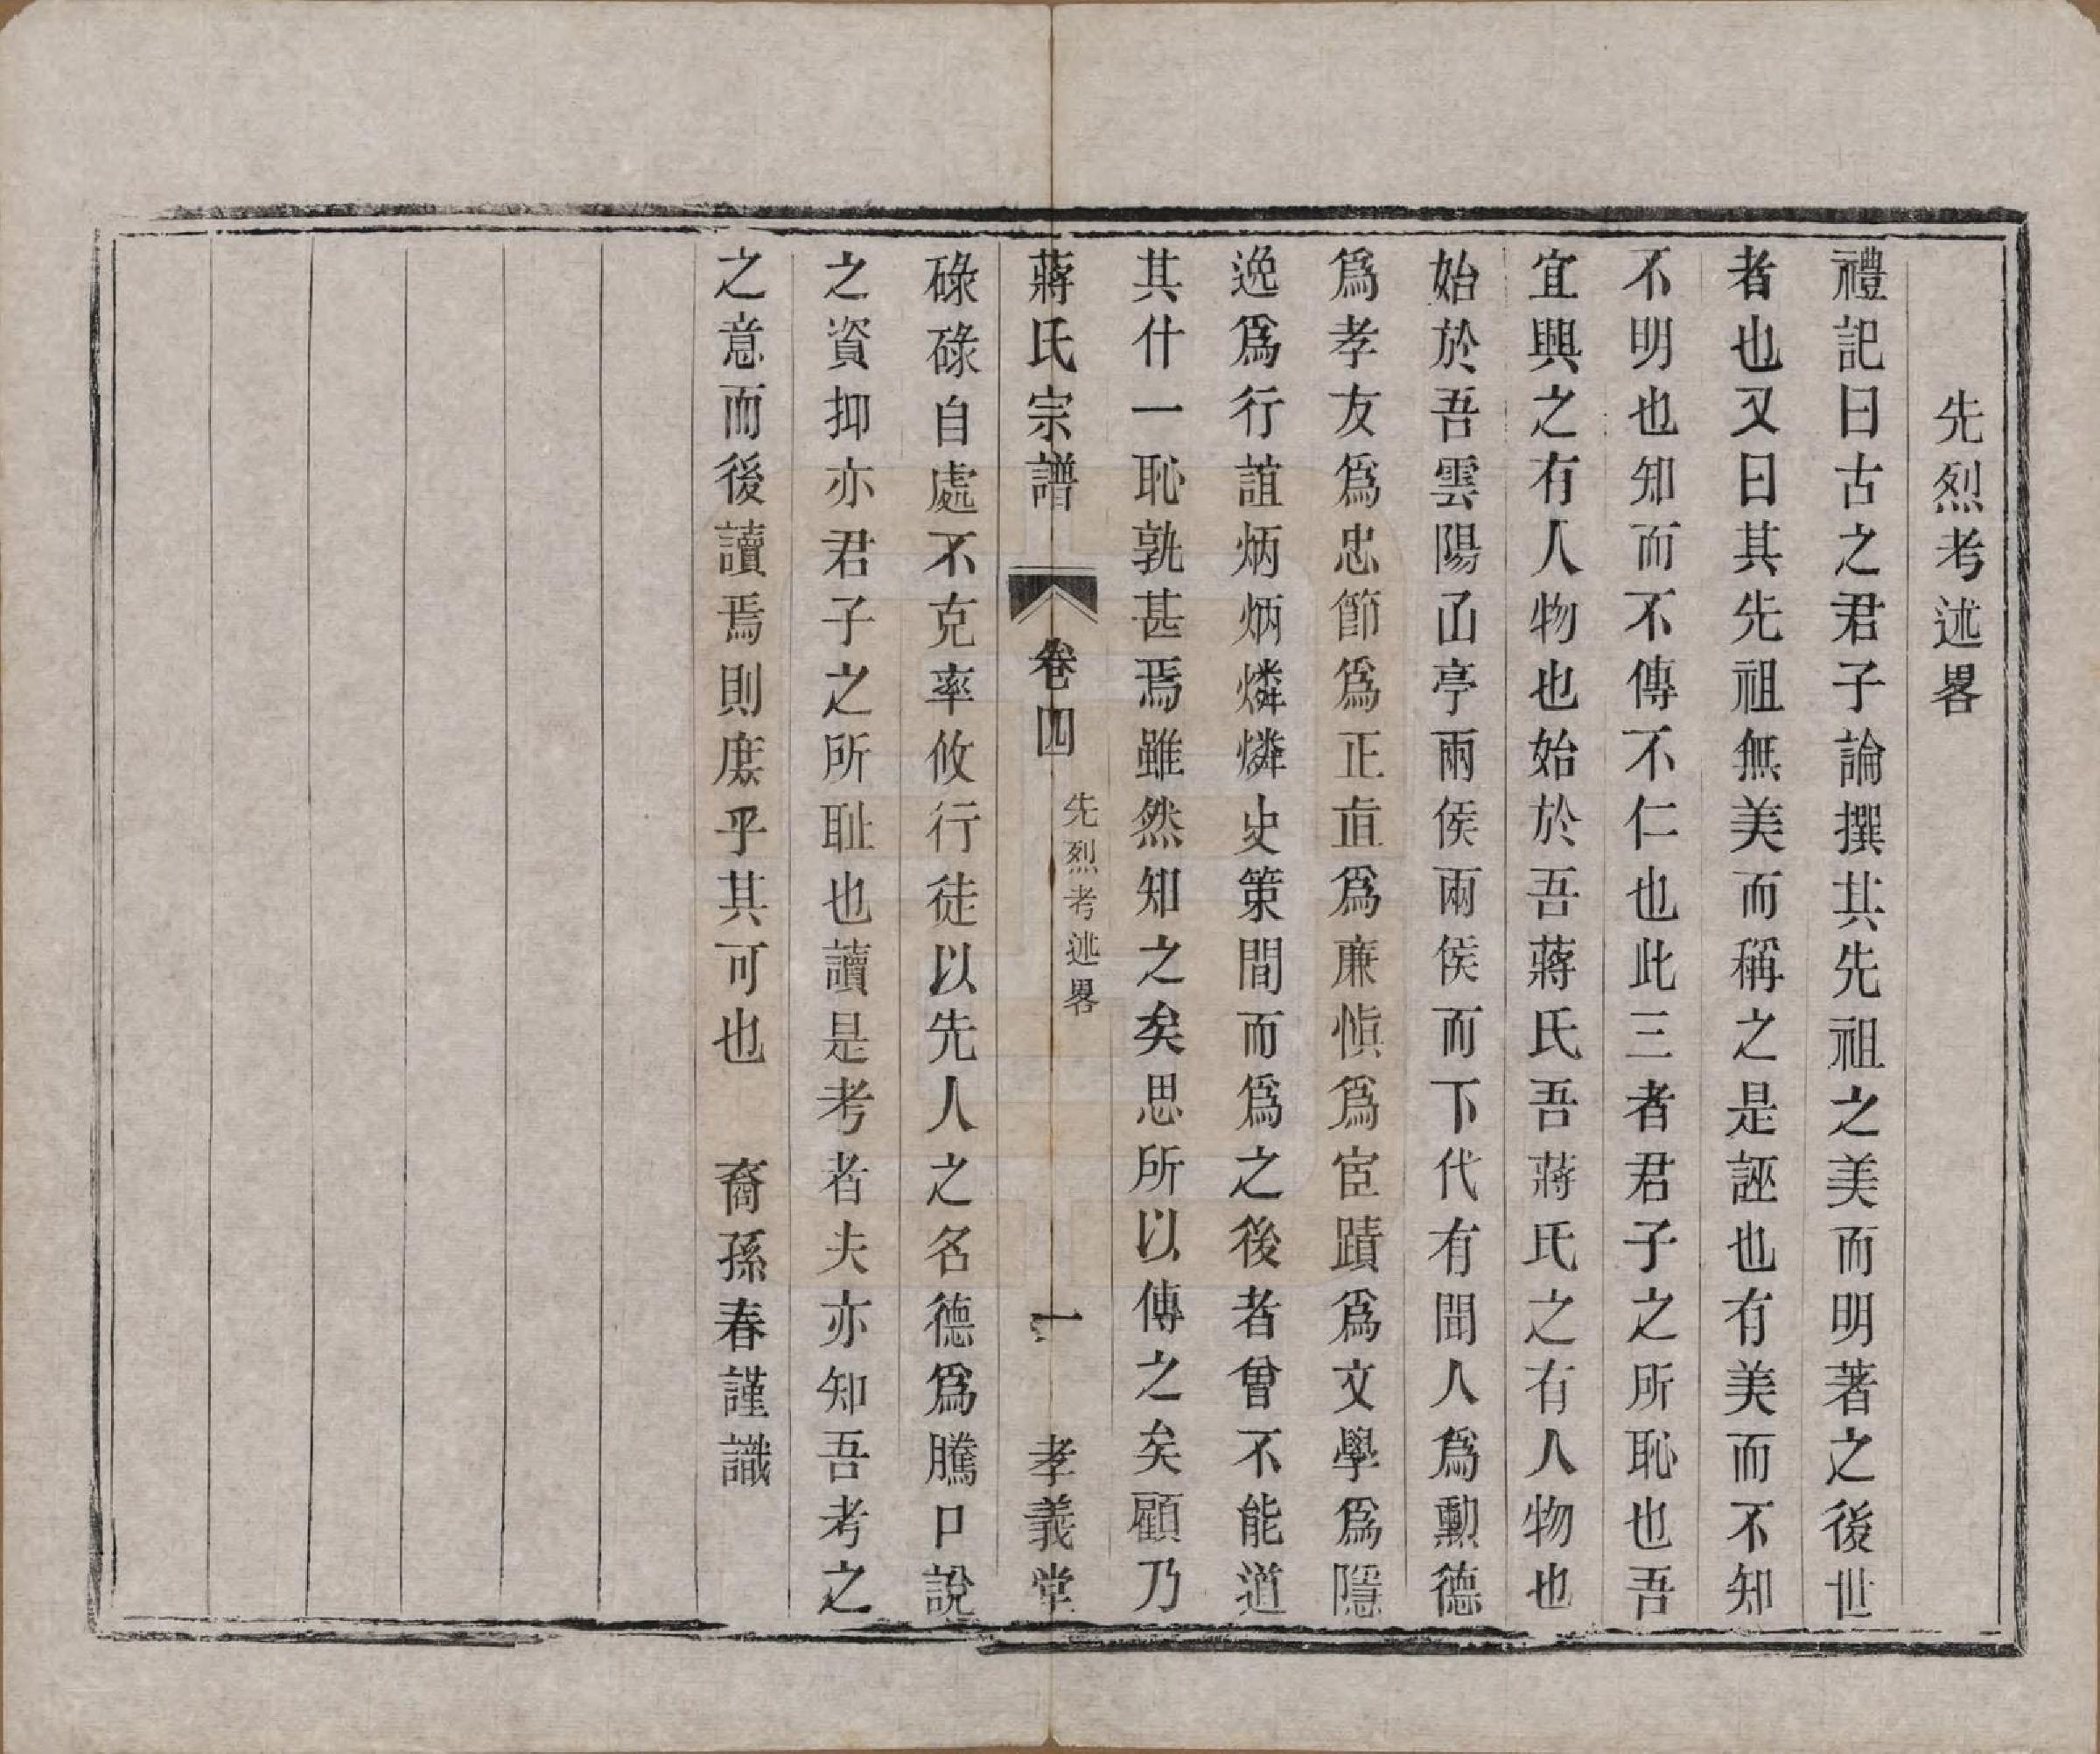 先烈考述畧
禮記曰古之君子論撰其先祖之美而明著之後世
者也又曰其先祖無美而稱之是誣也有美而不知
不明也知而不傳不仁也此三者君子之所恥也吾
宜興之有人物也始於吾蔣氏吾蔣氏之有人物也
始於吾雲陽㓛亭兩侯兩侯而下代有聞人為勳德
為孝友為忠節為正直為廉慎為宦蹟為文學為隱
逸為行誼炳炳燐燐史策間而為之後者曾不能道
其什一恥孰甚焉雖然知之矣思所以傳之矣顧乃
蔣氏宗譜 卷四 先烈考述畧 一 孝義堂
碌碌自處不克率攸行徒以先人之名德為騰口說
之資抑亦君子之所耻也讀是考者夫亦知吾考之
之意而後讀焉則庶乎其可也 裔孫春謹識